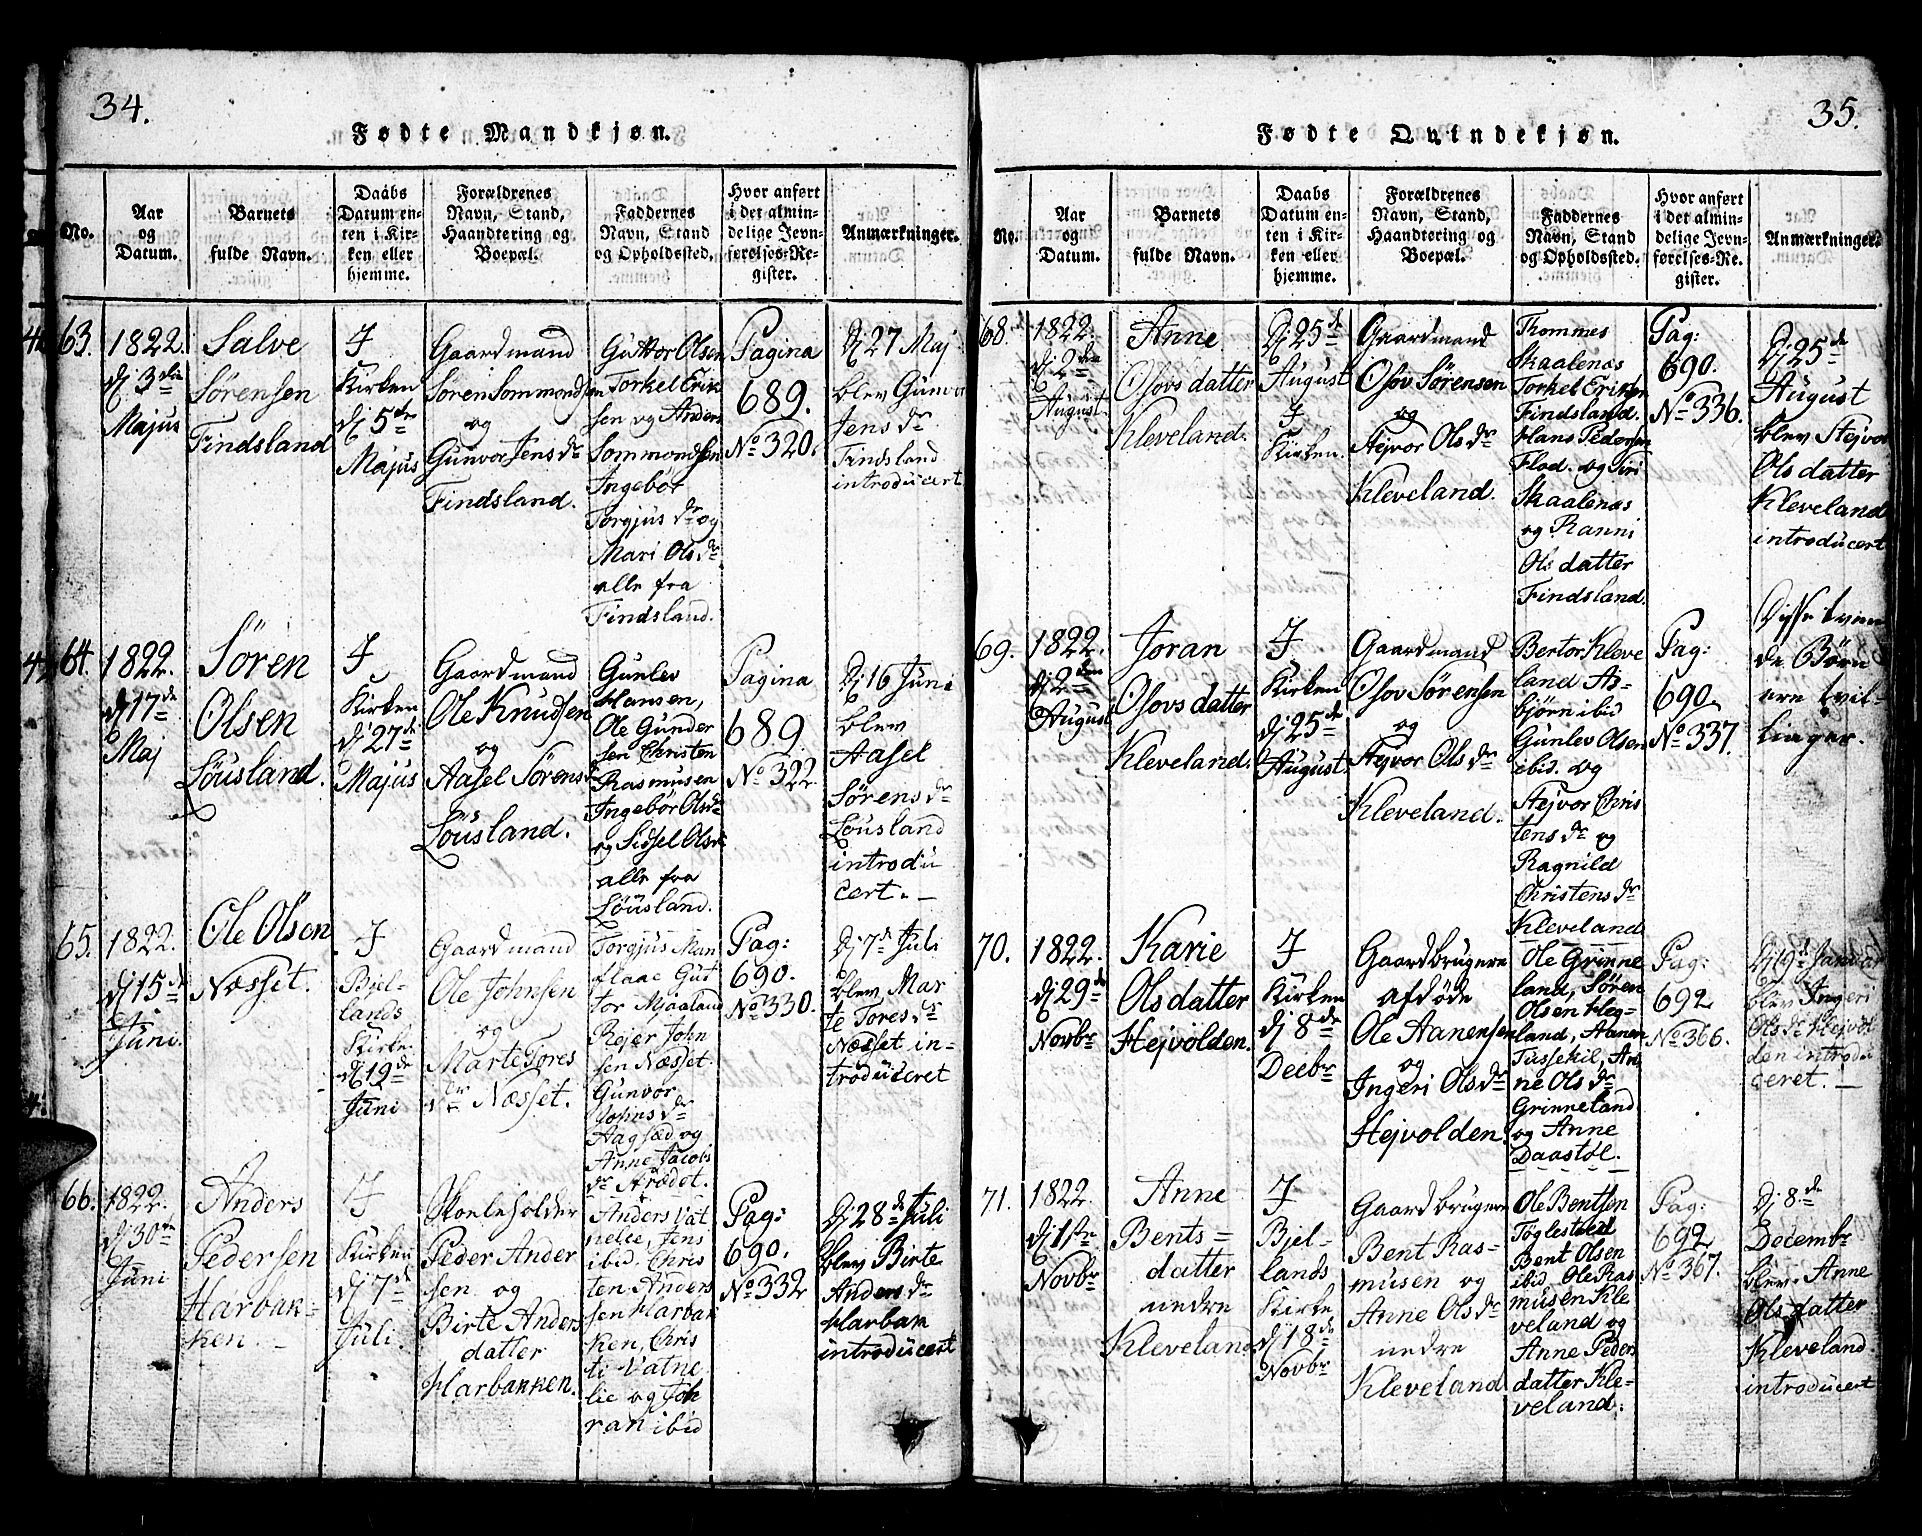 34.
Fødte Mandkjøn.
No.
Aar
og
Datum.
Barnets
fulde Navn.
Daabs
Datum en-
ten i Kir-
ken eller
hjemme.
Forældrenes
Navn, Stand,
Haandtering og
Boepæl.
Faddernes
Navn, Stand
og Opholdssted.
Hvor anført
i det almin-
delige Jevn-
førelses-Re-
gister.
Anmærkninger.
63.
1822.
Dj 3die
Majus
Salve
Sørensen
Findsland
I
Kirken
dj 5te
Majus
Gaardmand
Sören Sommondsen
og
Gunvor Jens dr
Findsland.
Guttor Olsen
Torkel Erik
sen og Anders
Sommondsen
Ingebor
Torgjus dr og
Mari Ols dr
alle fra
Findsland.
Pagina
689.
No 320.
Dj 27 Maj
blev Gunvor
Jens dr
Findsland
introducert
64.
1822.
dj 17de
Maj
Sören
Olsen
Löusland.
I
Kirken
dj 27de
Majus
Gaardmand
Ole Knudsen
og
Aasel Sörens dr
Löusland.
Gunlev
Hansen,
Ole Gunder
sen Christen
Rasmusen
Ingebor Ols dr
og Sissel Ols dr
alle fra
Löusland.
Pagina
689
No 322
Dj 16 Juni
blev
Aasel
Sörens dr
Löusland
introdu
cert. -
65.
1822.
dj 15de
Juni.
Ole Olsen
Næsset.
I
Bjel-
lands
Kirke
dj 19de
Juni
Gaardmand
Ole Johnsen
og
Marte Tores
dr Næsset.
Torgjus Man
flaae Gut
tor Mjaaland
Rejer John
sen Næsset
Gunvor
Johns dr
Aagsæd og
Anne Jacobs
dr Strædet.
Pag:
690.
No 330.
Dj 7de Juli
blev Mar
te Tores dr
Næsset in-
troduceret
66.
1822.
dj 30te
Juni
Anders
Pedersen
Harbak-
ken. -
I
Kirken
dj 7de
Juli.
Skoleholder
Peder Ander
sen og
Birte Anders
datter
Harbakken.
Anders Vat
nelie, Jens
ibid. Chris
ten Anders
sen Harbak
ken, Chris
ti Vatne
lie og Joh
ran ibid
Pag:
690.
No 332
Dj 28de Juli
blev Birte
Anders dr
Harbak
introducert
35.
Fødte Qvindekjøn.
No.
Aar
og
Datum.
Barnets
fulde Navn.
Daabs
Datum en-
ten i Kir-
ken eller
hjemme.
Forældrenes
Navn, Stand,
Haandtering og
Boepæl.
Faddernes
Navn, Stand
og Opholdssted.
Hvor anført
i det almin-
delige Jevn-
førelses-Re-
gister.
Anmærkninger.
68.
1822.
dj 2den
August
Anne
Osovs datter
Kleveland.
Dj 25de
August
I
Kirken.
Gaardmand
Osov Sörensen
og
Stejvor Ols dr
Kleveland.
Thommes
Skaalenas
Torkel Eriksen
Findsland.
Hans Pedersen
Flod. og Siri
Skaalenas
og Ranni
Ols datter
Findsland.
Pag:
690.
No 336.
Dj 25de
August
blev Stejvor
Ols datter
Kleveland
introducert
69.
1822.
dj 2den
August
Joran
Osovs datter
Kleveland.
I
Kirken
dj 25de
August.
Gaardmand
Osov Sörensen
og
Stejvor Ols dr
Kleveland.
Bertor Kleve
land As-
björn ibid
Gunlev Olsen
ibid. og
Stejvor Chris
tens dr og
Ragnild
Christens dr
Kleveland
Pag:
690.
No 337.
Disse tven
de Börn
ere tvil-
linger.
70.
1822.
dj 29de
Novbr
Karie
Ols datter
Hejvolden.
I
Kirken
dj 8de
Decbr
Gaardbrugere
afdöde
Ole Aanensen
og
Ingeri Ols dr
Hejvolden.
Ole Grinne
land, Sören
Olsen Heg-
land, Aanen
Tussekil, An
ne Ols dr
Grinneland
og Anne
Daastöl.
Pag:
692
No 366.
Dj 19de Januar
blev Ingeri
Ols dr Hejvol
den introdu
ceret. -
71.
1822.
dj 1ste
Novbr
Anne
Bents=
datter
nedre
Kleveland
I
Bjel-
lands
Kirke
dj 18de
Novbr
Gaardbrugere
Bent Ras-
musen og
Anne Ols dr
nedre
Kleveland
Ole Bentsen
Töglestad
Bent Olsen
ibid. Ole Ras
musen Kle
veland og
Anne Peders
datter Kle-
veland.
Pag:
692
No 367.
Dj 8de
Decembr
blev Anne
Ols datter
Kleveland
introducert